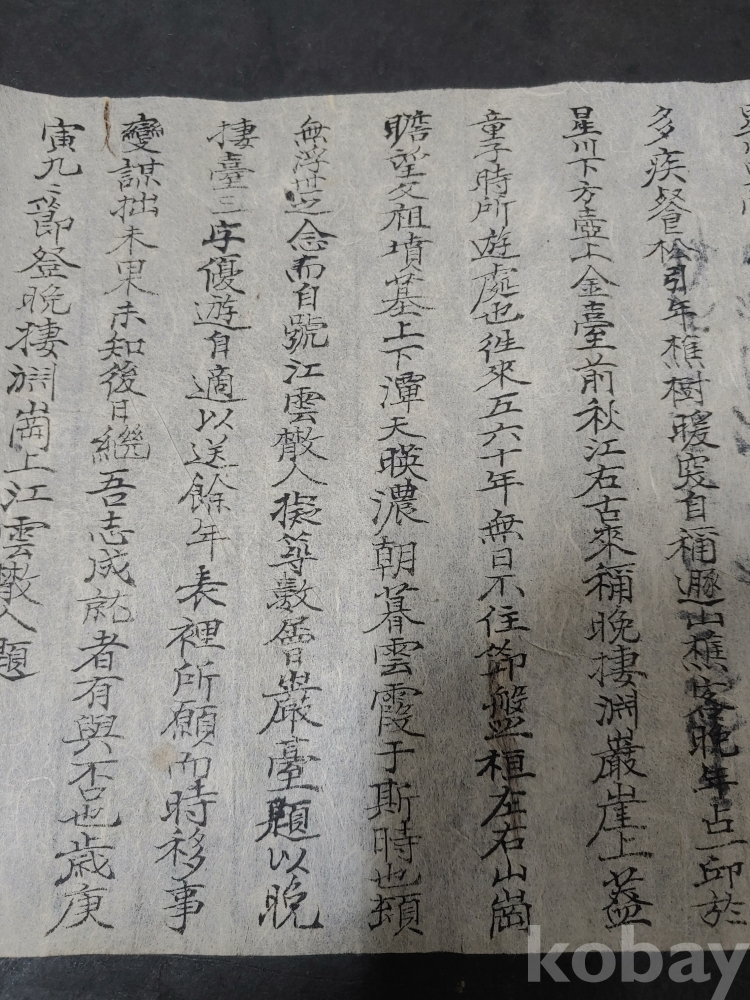 多疾餐松引年樵樹暖突自稱遯山樵客晩年占一邱於
星川下方壺上金臺前秋江右古來稱晩捿渊巖崖上盖
童子時所遊處也徃來五六十年無日不住笻盤桓左右山崗
瞻望父祖墳墓上下潭天暎濃朝暮雲霞于斯時也頚
無浮世之念而自號江雲散人擬等數畳巖臺題以晩
捿臺三字優遊自適以送餘年表裡所願而時移事
變謀拙未果未知後日繼吾志成就者有與否也歳庚
寅九之節登晩捿渊崗上江雲散人題
kobay